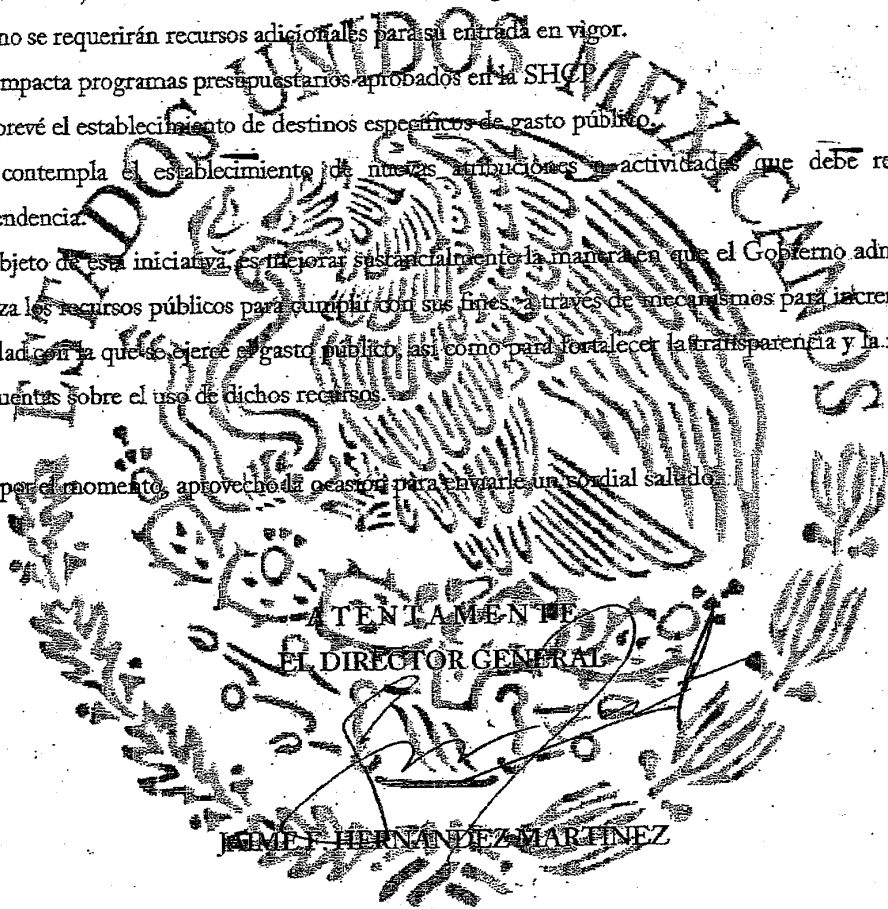 no se requerirán recursos adicionales para su entrada en vigor.
mpacta programas presupuestarios aprobados en la SHCP
prevé el establecimiento de destinos específicos de gasto público.
contempla el establecimiento de nuevas atribuciones o actividades que debe re
endencia.
bjeto de esta iniciativa es mejorar sustancialmente la manera en que el Gobierno adr
za los recursos públicos para cumplir con sus fines, a través de mecanismos para increr
dad con la que se ejerce el gasto público, así como para fortalecer la transparencia y la
uentas sobre el uso de dichos recursos.
por el momento, aprovecho la ocasión para enviarle un cordial saludo.
ESTADOS UNIDOS MEXICANOS
ATENTAMENTE
EL DIRECTOR GENERAL
JAIME F. HERNANDEZ MARTINEZ